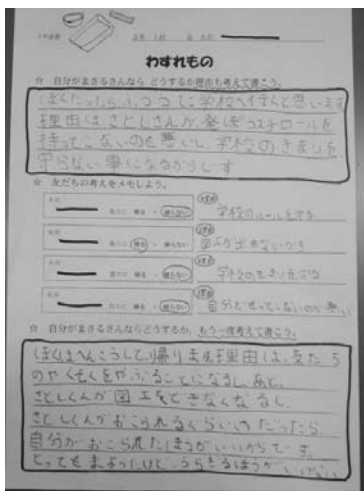 わすれもの
☆ 自分がまさるさんなら どうするか理由も考えて書こう。
ぼくだったらふつうに学校へ行くと思います
理由はさとしさんが発ぽうスチロールを
持ってこないのも悪いし、学校のきまりを
守らない事になるからです
☆ 友だちの考えをメモしよう。
帰る ・ 帰らない
学校のルールを守る
帰る ・ 帰らない
図工が出来ないから
帰る ・ 帰らない
学校のきまりを守る
帰る ・ 帰らない
自分で持ってこないのが悪い
☆ 自分がまさるさんならどうするか、もう一度考えて書こう。
ぼくはへんこうして、帰ります理由は、友だち
のやくそくをやぶることになるし、あと、
さとしくんが図工をできなくなるし、
さとしくんがおこられるくらいのだったら
自分がおこられたほうがいいからです。
とってもまよったけど、うらぎるほうがいけない